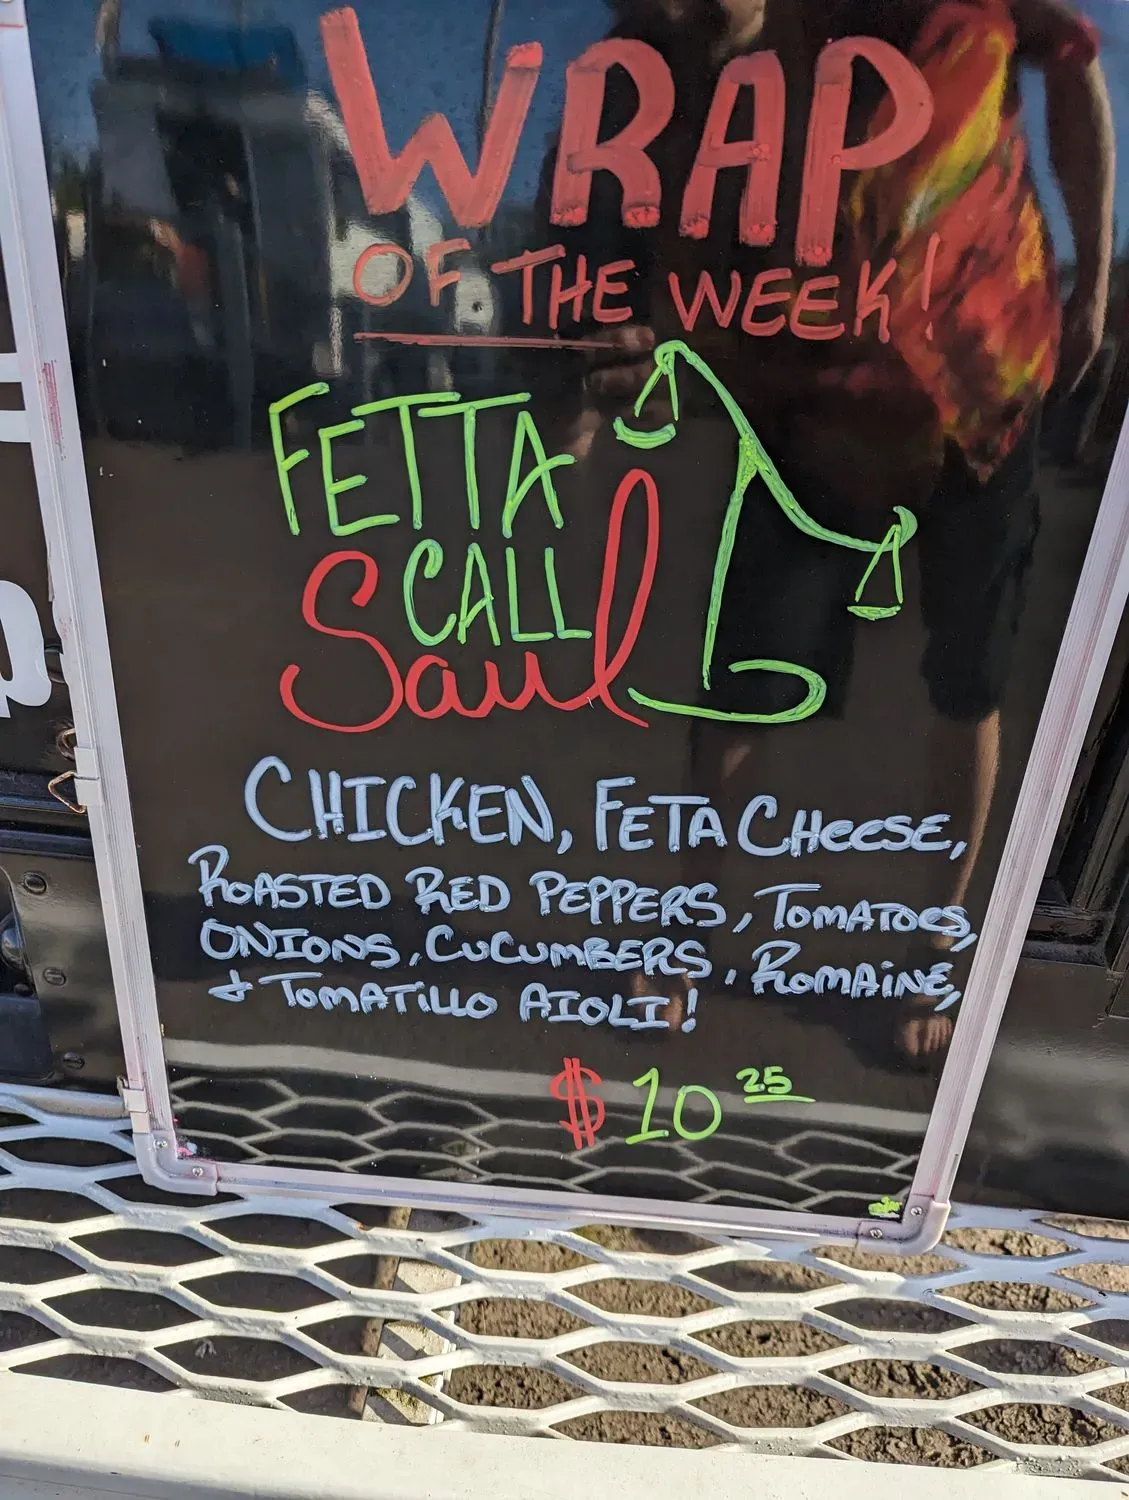 WRAP
OF THE WEEK!
FETTA
CALL
Saul
CHICKEN, FETA CHEESE,
ROASTED RED PEPPERS, TOMATOES,
ONIONS, CUCUMBERS, ROMAINE,
+ TOMATILLO AIOLI!
$10 25